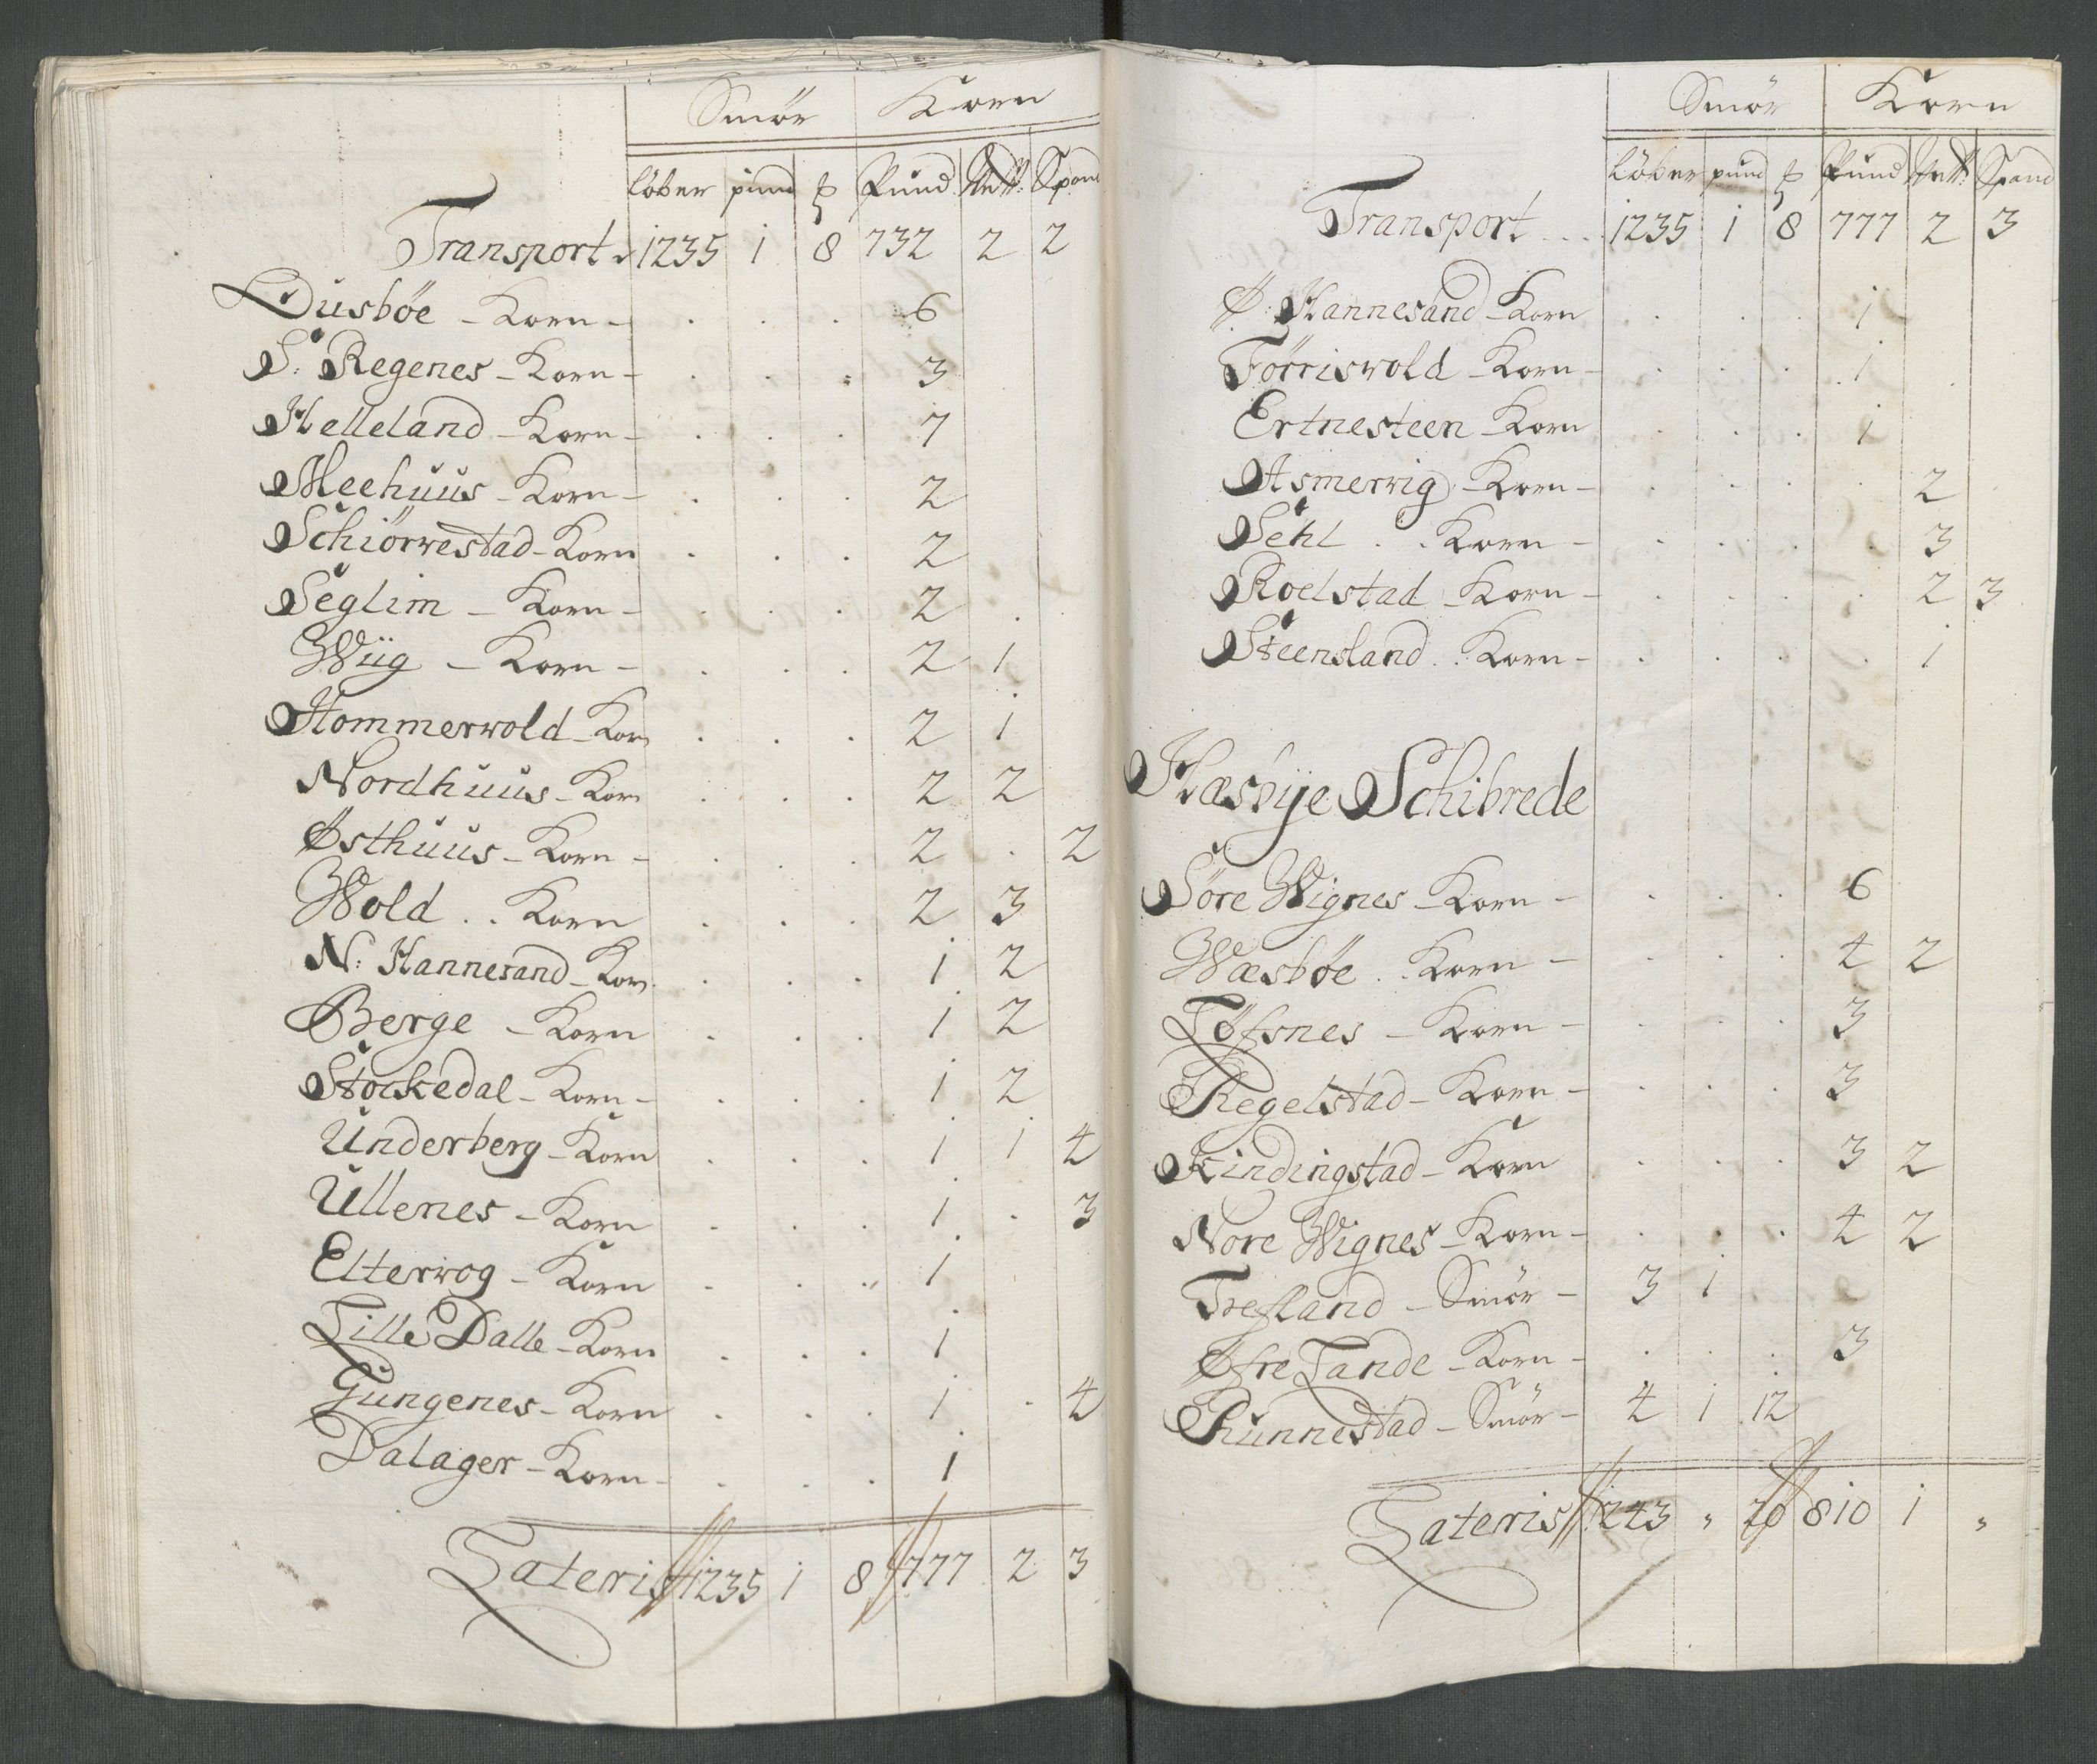 Smör Korn
löber pund ℔ Pund Vett: Spand
Transport 1235 1 8 732 2 2
Dusböe - Korn - 6
S: Regenes - Korn - 3
Helleland - Korn - 7
Meehuus - Korn - 2
Schiörvestad - Korn 2
Seglim - Korn - 2
Wiig - Korn - 2 1
Hommervold - Korn 2 1
Nordhuus - Korn 2 2
Østhuus - Korn - 2 . 2
Wold . . Korn 2 3
N: Hannesand - Korn 1 2
Berge - Korn 1 2
Stockedal - Korn - 1 2
Underberg - Korn 1 1 4
Ullenes - Korn 1 . 3
Eltervog - Korn 1
Lille Dalle - Korn 1
Tungenes - Korn 1 . 4
Dalager - Korn - 1
Lateris 1235 1 8 777 2 3
Smör Korn
löber pund ℔ Pund Vett: Spand
Transport . . . 1235 1 8 777 2 3
Ø: Hannesand - Korn 1
Törrisvold - Korn - 1
Ertnesteen - Korn 1
Asmervig - Korn - 2
Sehl . . Korn - 3
Roelstad - Korn - 2 3
Steensland . . Korn - 1
Hæsbye Schibrede
Söre Wignes - Korn - 6
Wæsböe . . Korn - 4 2
Löfsnes - Korn - 3
Regelstad - Korn - 3
Kindingstad - Korn 3 2
Nore Wignes - Korn - 4 2
Trefland - Smör - 3 1
Øfre Lande - Korn - 3
Runnestad - Smör - 4 1 12
Lateris 1243 " 20 810 1 "